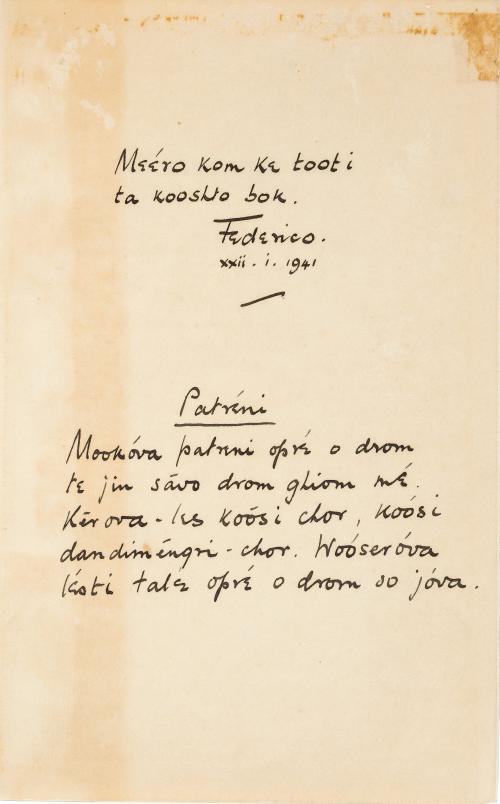 Meéro kom ke tooti
ta kooshto bok.
Federico.
xxii. i. 1941
Patréni
Mookóva patreni opré o drom
te jin sāvo drom ghiom mé.
Kērova-les koósi chor, koósi
dandiméngri-chor. Woóseróva
lésti talé opré o drom so jóva.